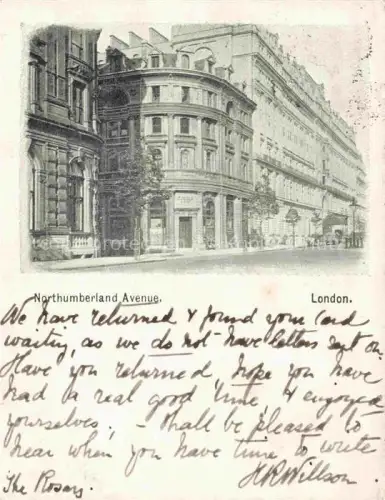 Northumberland Avenue. London.
We have returned & found your card
waiting, as we do not have letters sent on.
Have you returned, hope you have
had a real good time, & enjoyed
yourselves, – shall be pleased to
hear when you have time to write
H R Willson
The Rosary